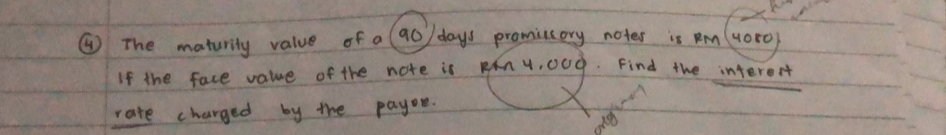 ④ The maturity value of a 90 days promissory notes is RM 4080,
if the face value of the note is RM 4,000. Find the interest
rate charged by the payee.
original